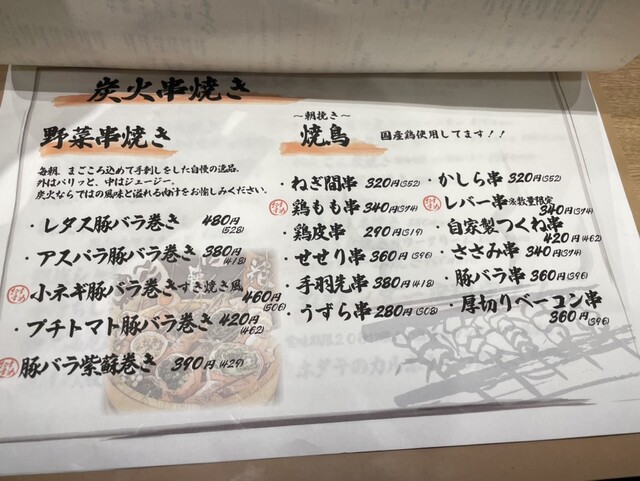 炭火串焼き
野菜串焼き
毎朝、まごころ込めて手刺しをした自慢の逸品。
外はパリッと、中はジューシー。
炭火ならではの風味と溢れる肉汁をお愉しみください。
・レタス豚バラ巻き 480円(528)
・アスパラ豚バラ巻き 380円(418)
おすすめ 小ネギ豚バラ巻きすき焼き風 460円(506)
・プチトマト豚バラ巻き 420円(462)
おすすめ 豚バラ紫蘇巻き 390円(429)
～朝挽き～
焼鳥
国産鶏使用してます！！
・ねぎ間串 320円(352)
おすすめ 鶏もも串 340円(374)
・鶏皮串 290円(319)
・せせり串 360円(396)
・手羽先串 380円(418)
・うずら串 280円(308)
・かしら串 320円(352)
おすすめ レバー串 ※数量限定 340円(374)
・自家製つくね串 420円(462)
・ささみ串 340円(374)
・豚バラ串 360円(396)
・厚切りベーコン串 360円(396)